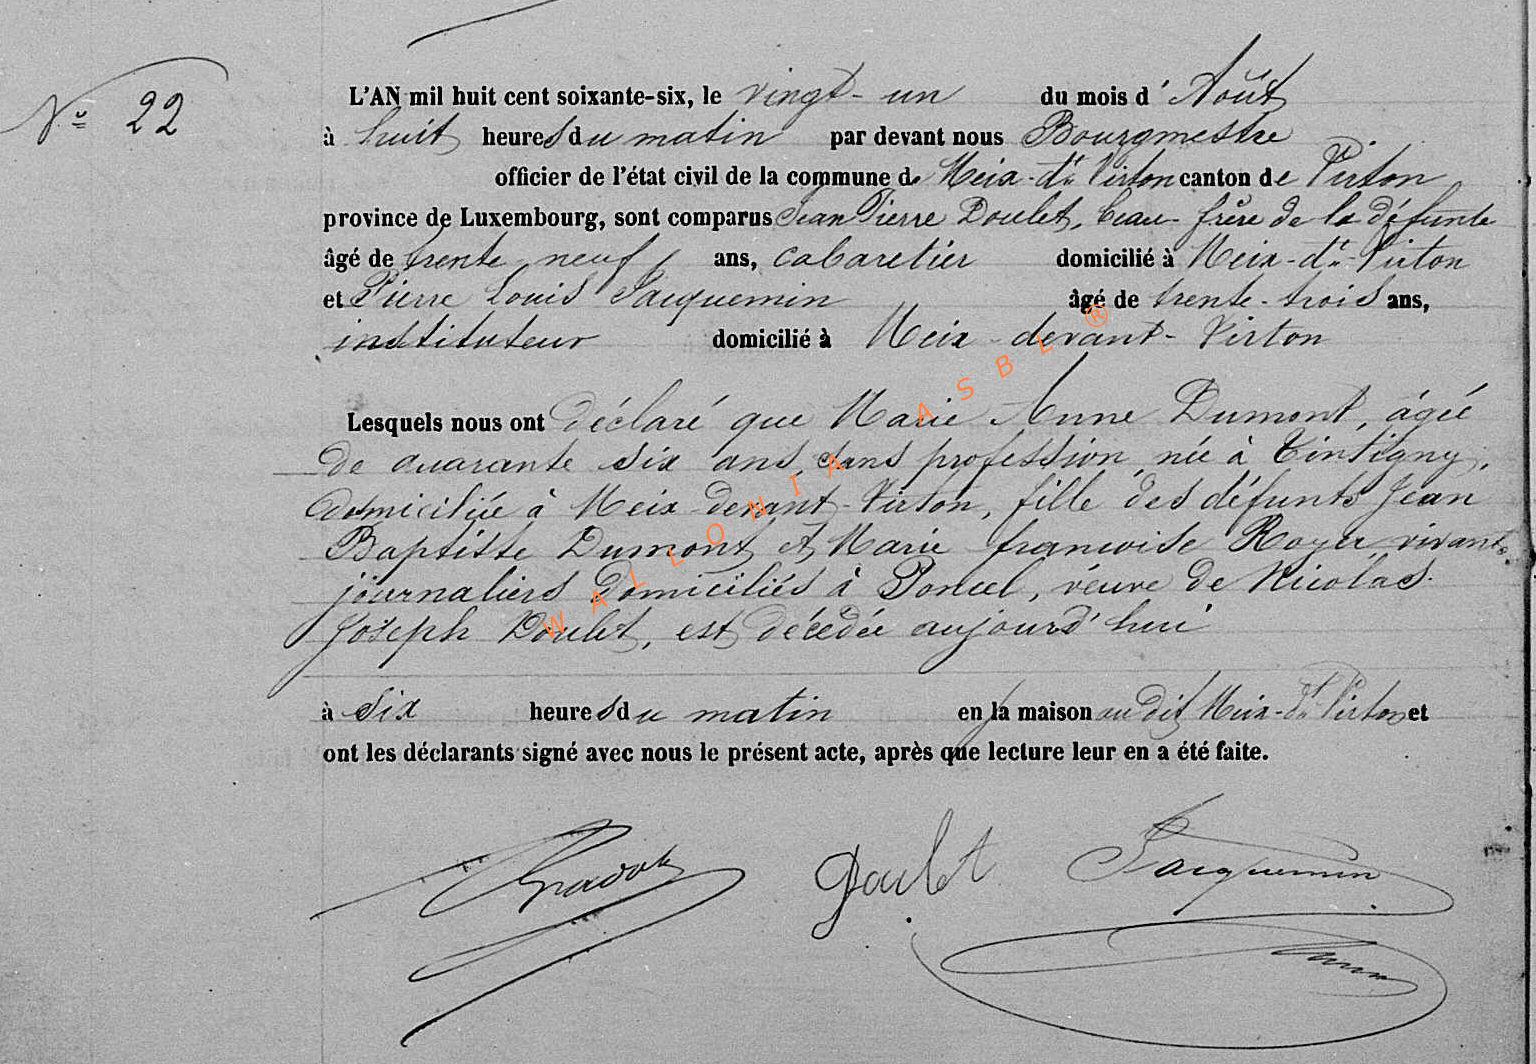 N° 22
L'AN mil huit cent soixante-six, le vingt-un du mois d'Août
à huit heures du matin par devant nous Bourgmestre
officier de l'état civil de la commune de Meix-dt Virton canton de Virton
province de Luxembourg, sont comparus Jean Pierre Doulet, beau-frère de la défunte
âgé de trente neuf ans, cabaretier domicilié à Meix-dt-Virton
et Pierre Louis Jacquemin âgé de trente-trois ans,
instituteur domicilié à Meix-devant-Virton
Lesquels nous ont déclaré que Marie Anne Dumont, âgée
de quarante six ans, sans profession, née à Tintigny,
domiciliée à Meix-devant-Virton, fille des défunts Jean
Baptiste Dumont et Marie françoise Royer, vivants
journaliers domiciliés à Poncel, véuve de Nicolas
Joseph Doulet, est décédée aujourd'hui
à six heures du matin en la maison au dit Meix-dt Virton et
ont les déclarants signé avec nous le présent acte, après que lecture leur en a été faite.
Doulet Jacquemin
WALLONIA ASBL ®